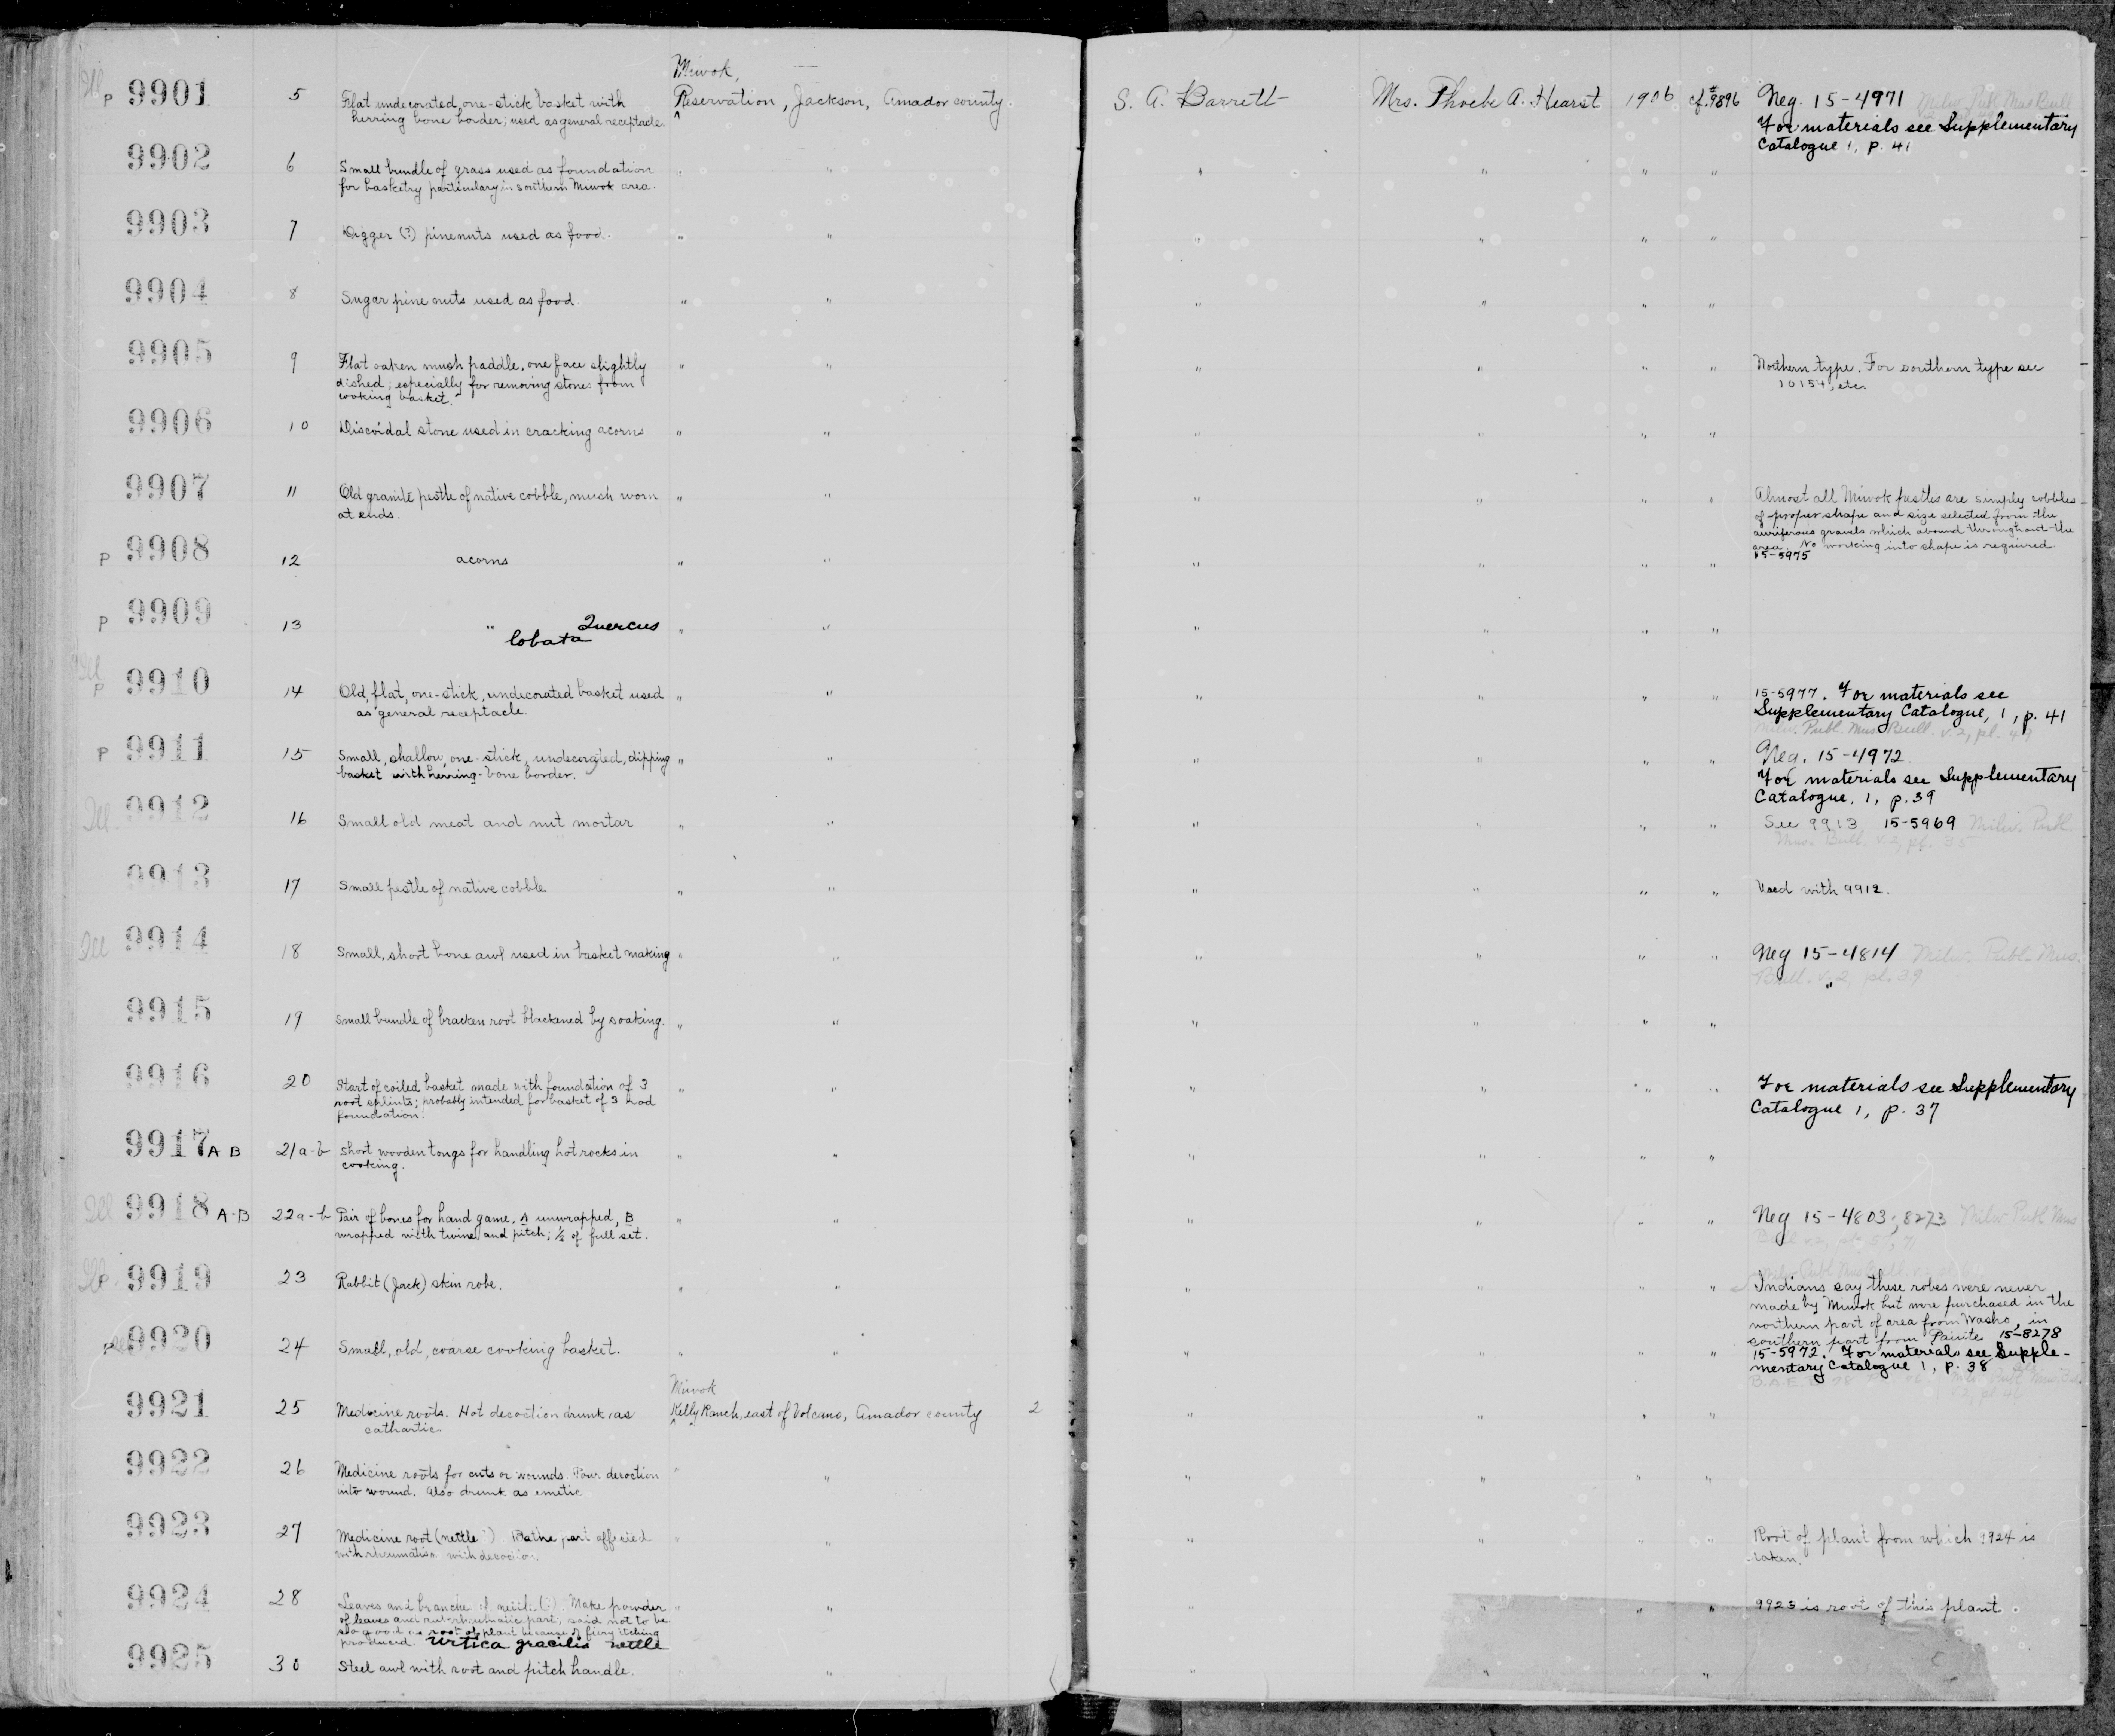 Miwok,
Ill P 9901 5 Flat undecorated one-stick basket with Reservation, Jackson, Amador county. S. A. Barrett Mrs. Phoebe A. Hearst 1906 cf. #9896 Neg. 15-4971 Milw. Publ. Mus Bull
herring bone border; used as general receptacle. For materials see Supplementary
Catalogue 1, p. 41
9902 6 Small bundle of grass used as foundation " " " " " "
for basketry particulary in southern Miwok area.
9903 7 Digger (?) pinenuts used as food. " " " " " "
9904 8 Sugar pine nuts used as food. " " " " " "
9905 9 Flat oaken mush paddle, one face slightly " " " " " " Northern type. For southern type see
dished; especially for removing stones from 10154, etc.
cooking basket.
9906 10 Discoidal stone used in cracking acorns " " " " " "
9907 11 Old granite pestle of native cobble, much worn " " " " " " Almost all Miwok pestles are simply cobbles
at ends. of proper shape and size selected from the
auriferous gravels which abound throughout the
area. No working into shape is required.
P 9908 12 acorns " " " " " " 15-5975
P 9909 13 " Quercus " " " " " "
lobata
Ill P 9910 14 Old, flat, one-stick, undecorated basket used " " " " " " 15-5977. For materials see
as general receptacle. Supplementary Catalogue, 1, p. 41
Milw. Publ. Mus. Bull. v. 2, pl.
P 9911 15 Small, shallow, one-stick, undecorated, dipping " " " " " " Neg. 15-4972
basket with herring-bone border. For materials see Supplementary
Catalogue, 1, p. 39
Ill. 9912 16 Small old meat and nut mortar " " " " " " See 9913 15-5969 Milw. Publ.
Mus. Bull. v. 2, pl. 35
9913 17 Small pestle of native cobble " " " " " " Used with 9912.
Ill 9914 18 Small, short bone awl used in basket making " " " " " " Neg 15-4814 Milw. Publ. Mus.
Bull. v. 2, pl. 39
9915 19 Small bundle of bracken root blackened by soaking. " " " " " "
9916 20 Start of coiled basket made with foundation of 3 " " " " " " For materials see Supplementary
root splints; probably intended for basket of 3 rod Catalogue 1, p. 37
foundation.
9917 A B 21a-b Short wooden tongs for handling hot rocks in " " " " " "
cooking.
Ill 9918 A-B 22a-b Pair of bones for hand game. A unwrapped, B " " " " " " Neg 15-4803; 8273 Milw Publ Mus
wrapped with twine and pitch; ½ of full set.
Ill P 9919 23 Rabbit (Jack) skin robe. " " " " " " Indians say these robes were never
made by Miwok but were purchased in the
northern part of area from Washo, in
southern part from Paiute 15-8278
P 9920 24 Small, old, coarse cooking basket. " " " " " " 15-5972. For materials see Supple-
mentary Catalogue 1, p. 38
Miwok
9921 25 Medicine roots. Hot decoction drunk as Kelly Ranch, east of Volcano, Amador county 2 " " " "
cathartic.
9922 26 Medicine roots for cuts or wounds. Pour decoction " " " " " "
into wound. Also drunk as emetic
9923 27 Medicine root (nettle?) Bathe part affected " " " " " " Root of plant from which 9924 is
with rheumatism with decoction. taken.
9924 28 Leaves and branches of nettle (?). Make powder " " " " " " 9923 is root of this plant.
of leaves and rub rheumatic part; said not to be
so good as root of plant because of fiery itching
produced. Urtica gracilis nettle
9925 30 Steel awl with root and pitch handle. " " " "